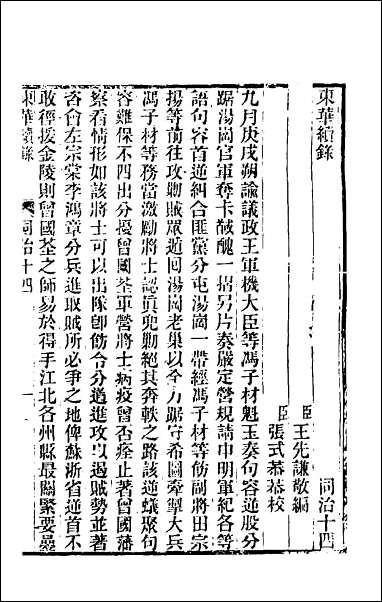 東華續錄
同治十四
臣王先謙敬編
臣張式恭恭校
九月庚戌朔諭議政王軍機大臣等馮子材魁玉奏句容逆股分
踞湯岡官軍奪卡馘醜一摺另片奏嚴定營規請申明軍紀各等
語句容首逆糾合匪黨分屯湯岡一帶經馮子材等飭副將田宗
揚等前往攻勦賊眾遁回湯岡老巢以全力踞守希圖牽掣大兵
馮子材等務當激勵將士認真兜勦絕其奔軼之路該逆蟻聚句
容難保不四出分擾曾國荃軍營將士病疫曾否痊止著曾國藩
察看情形如該將士可以出隊卽飭令分過進攻以遏賊勢並著
咨會左宗棠李鴻章分兵進取賊所必爭之地俾蘇浙省逆首不
敢徑援金陵則曾國荃之師易於得手江北各州縣最關緊要曇
東華續錄
同治十四
一